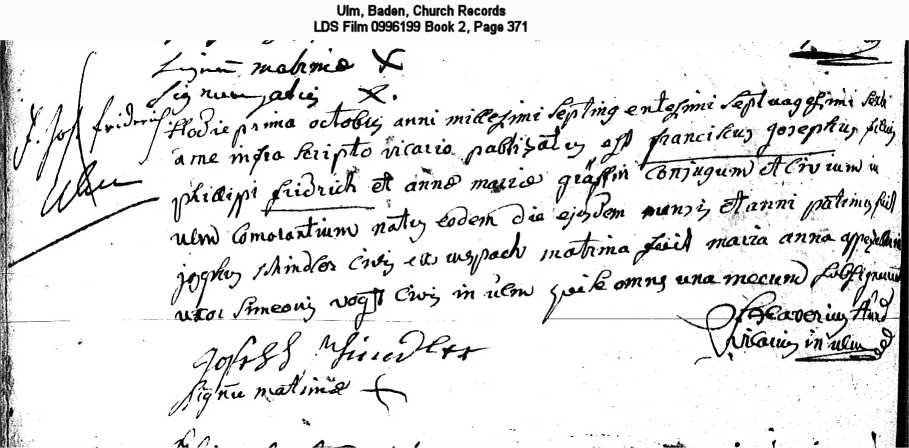 Ulm, Baden, Church Records
LDS Film 0996199 Book 2, Page 371
Signum matrinæ X
Signum patris X.
F. Jos. Friderich
Ulm
Hodie prima octobris anni millesimi septingentesimi septuagesimi sexti
a me infra scripto vicario babtizatus est franciskus josephus filius
philippi fridrich et annæ mariæ gräffin conjugum et civium in
ulm Comorantium natus eodem die ejusdem mensis et anni patrinus fuit
josephus schindler civis ex matrina fuit maria anna
uxor simeonis vogt civis in ulm qui omnes una mecum subsignarunt
Xaverius
vicarius in ulm
Joseph Schindler
signum matrinæ +